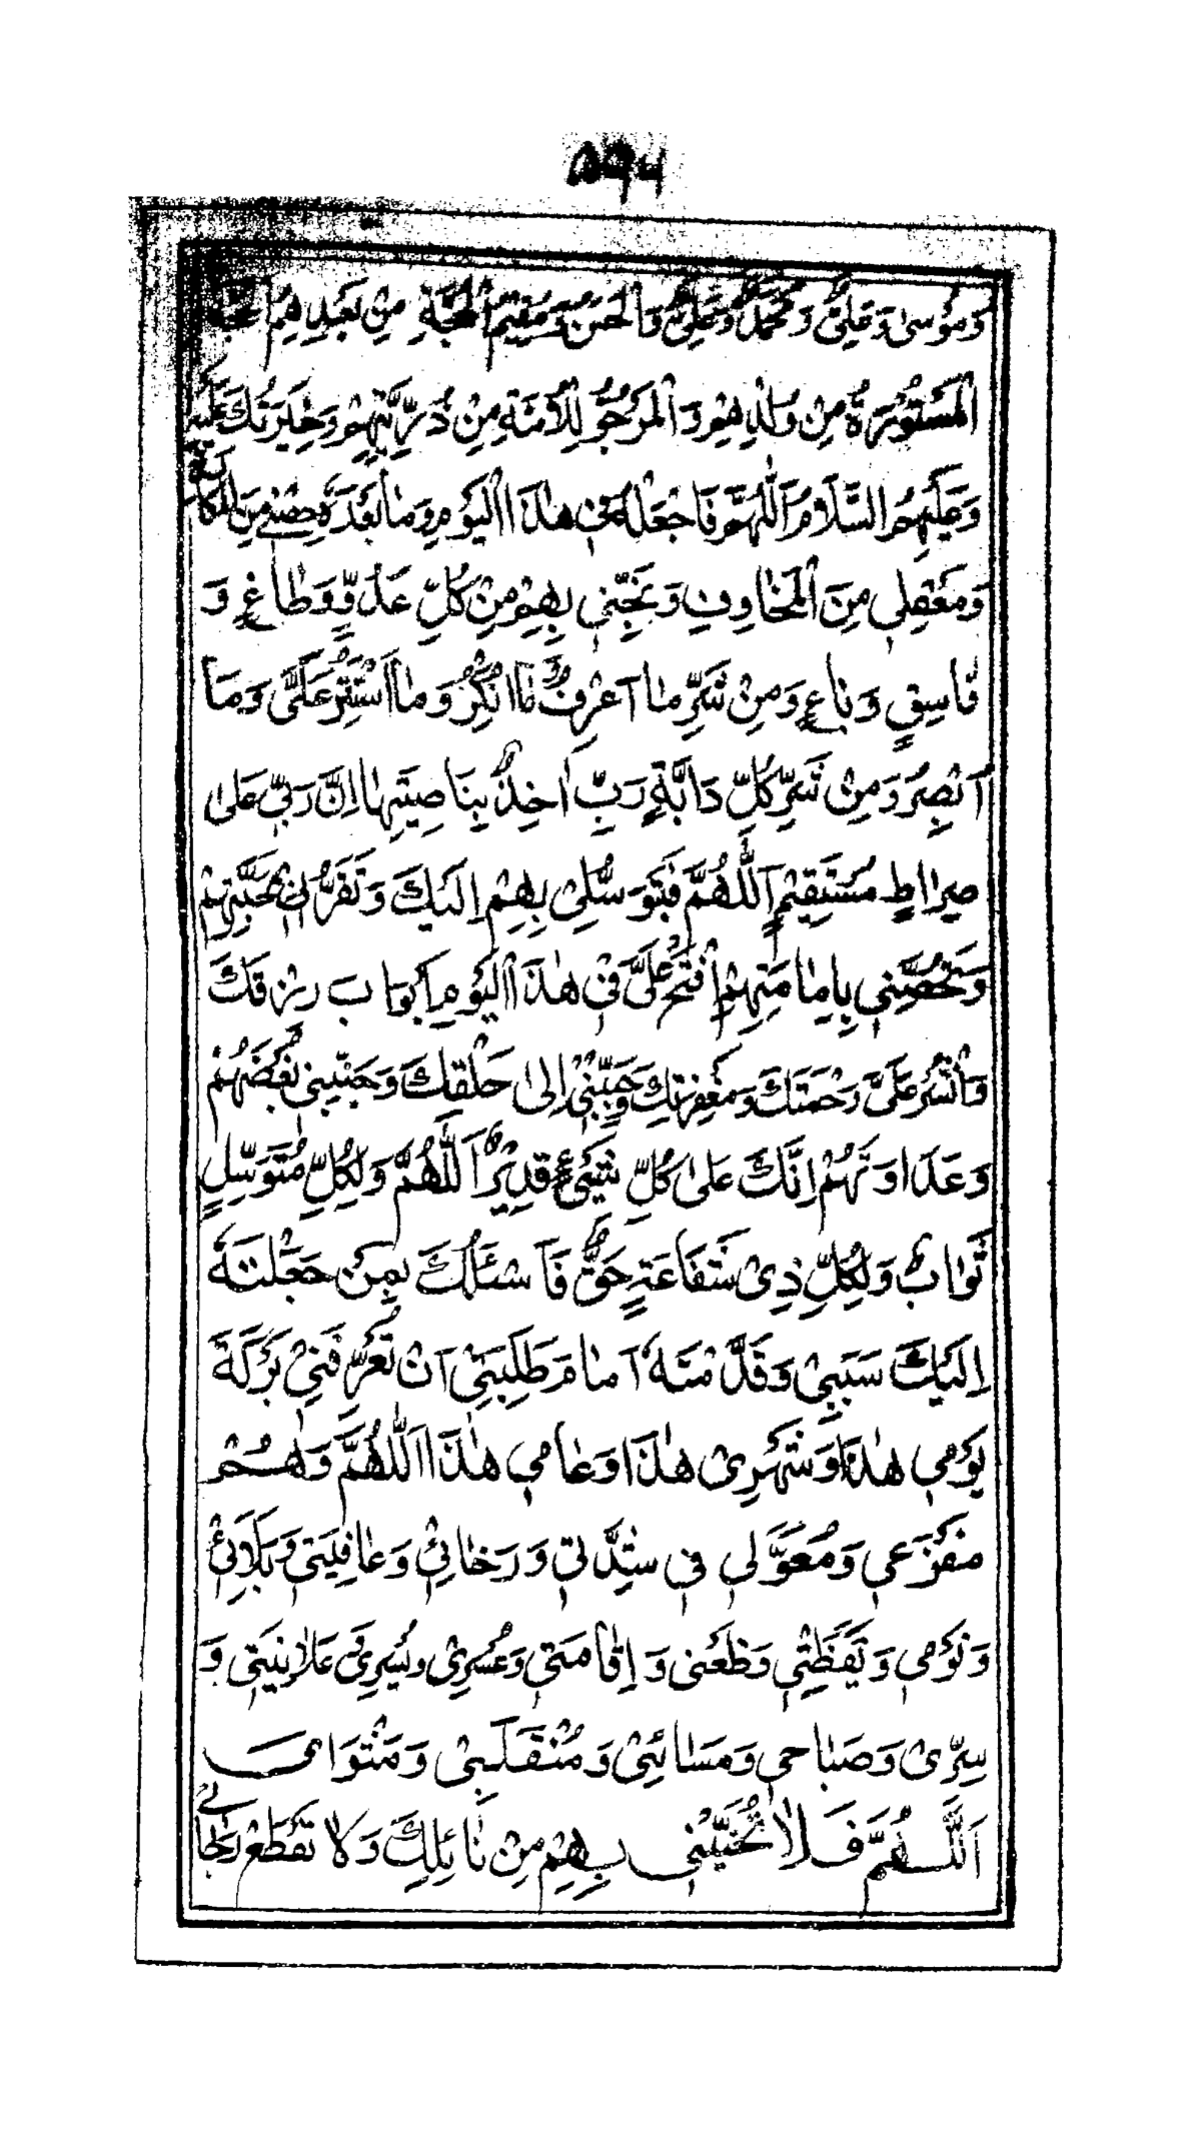 ۵۹۸
وَمُوسىٰ وَعَلِيٌّ وَمُحَمَّدٌ وَعَلِيٌّ وَالْحَسَنُ وَمُقِيمُ الْمَحَجَّةِ مِنْ بَعْدِهِمُ الْحُجَّةُ
الْمَسْتُورَةُ مِنْ وُلْدِهِمْ وَالْمَرْجُوُّ لِلْأُمَّةِ مِنْ ذُرِّيَّتِهِمْ وَخِيَرَتُكَ عَلَيْهِ
وَعَلَيْهِمُ السَّلَامُ اَللّٰهُمَّ فَاجْعَلْهُمْ فِى هٰذَا الْيَوْمِ وَمٰا بَعْدَهُ حِصْنِى مِنَ الْمَكَارِهِ
وَمَعْقِلِى مِنَ الْمَخٰاوِفِ وَنَجِّنِى بِهِمْ مِنْ كُلِّ عَدُوٍّ وَطٰاغٍ وَ
فٰاسِقٍ وَبٰاغٍ وَمِنْ شَرِّ مٰا اَعْرِفُ وَمٰا اُنْكِرُ وَمٰا اسْتَتَرَ عَلَىَّ وَمَا
اَبْصِرُ وَمِنْ شَرِّ كُلِّ دَابَّةٍ رَبِّ اٰخِذٌ بِنَاصِيَتِهٰا اِنَّ رَبِّى عَلىٰ
صِرٰاطٍ مُسْتَقِيمٍ اَللّٰهُمَّ فَبِتَوَسُّلِى بِهِمْ اِلَيْكَ وَتَقَرُّبِى بِمَحَبَّتِهِمْ
وَتَحَصُّنِى بِاِمٰامَتِهِمْ افْتَحْ عَلَىَّ فِى هٰذَا الْيَوْمِ اَبْوٰابَ رِزْقِكَ
وَانْشُرْ عَلَىَّ رَحْمَتَكَ وَمَغْفِرَتِكَ وَحَبِّبْنِى اِلىٰ خَلْقِكَ وَجَنِّبْنِى بُغْضَهُمْ
وَعَدَاوَتَهُمْ اِنَّكَ عَلىٰ كُلِّ شَيْئٍ قَدِيْرٌ اَللّٰهُمَّ وَلِكُلِّ مُتَوَسِّلٍ
ثَوٰابٌ وَلِكُلِّ ذِى شَفَاعَةٍ حَقٌّ فَاَسْئَلُكَ بِمَنْ جَعَلْتَهُ
اِلَيْكَ سَبَبِى وَقَدَّمْتَهُ اَمٰامَ طَلِبَتِى اَنْ تُعَرِّفَنِى بَرَكَةَ
يَوْمِى هٰذَا وَشَهْرِى هٰذَا وَعٰامِى هٰذَا اَللّٰهُمَّ وَهُمْ
مَفْزَعِى وَمُعَوَّلِى فِى شِدَّتِى وَرَخٰائِى وَعٰافِيَتِى وَبَلَائِى
وَنَوْمِى وَيَقَظَتِى وَظَعْنِى وَاِقٰامَتِى وَعُسْرِى وَيُسْرِى وَعَلَانِيَتِى وَ
سِرِّى وَصَبٰاحِى وَمَسٰائِى وَمُنْقَلَبِى وَمَثْوَاىَ
اَللّٰهُمَّ فَلَا تُخَيِّبْنِى بِهِمْ مِنْ نٰائِلِكَ وَلَا تَقْطَعْ رَجٰائِى